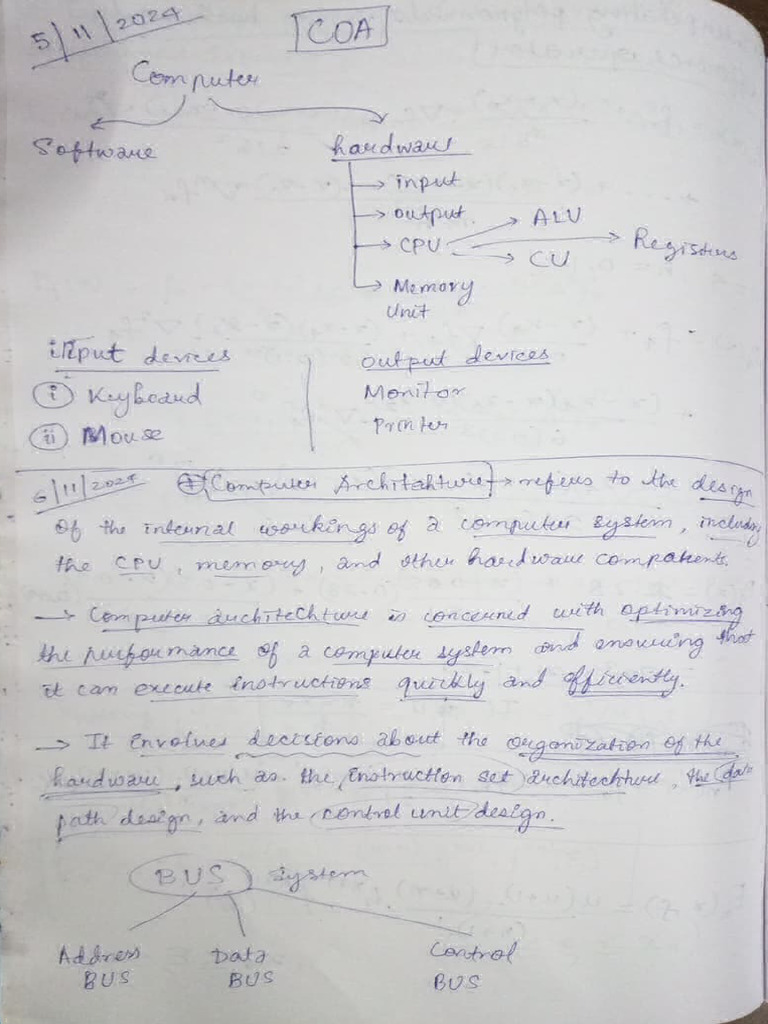 5/11/2024
COA
Computer
Software
hardware
input
output
CPU
ALU
CU
Registers
Memory
Unit
input devices
i Keyboard
ii Mouse
output devices
Monitor
Printer
6/11/2024 Computer Architehture → refers to the design
of the internal workings of a computer system, including
the CPU, memory, and other hardware components.
→ Computer architechture is concerned with optimizing
the performance of a computer system and ensuring that
it can execute instructions quickly and efficiently.
→ It involves decisions about the organization of the
hardware, such as the instruction set architechture, the data
path design, and the control unit design.
BUS System
Address
BUS
Data
BUS
Control
BUS